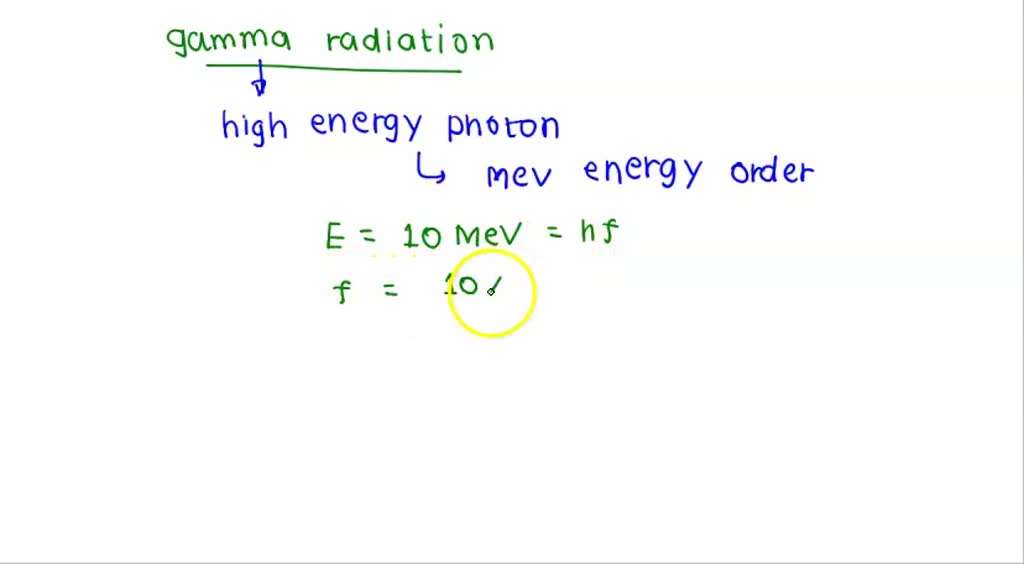 gamma radiation
high energy photon
mev energy order
E = 10 MeV = hf
f = 10